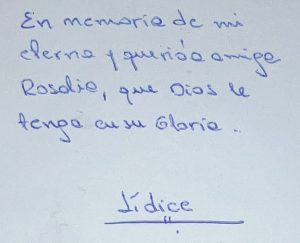 En memoria de mi
eterna y querida amiga
Rosalia, que Dios le
tenga en su Gloria..
Lídice